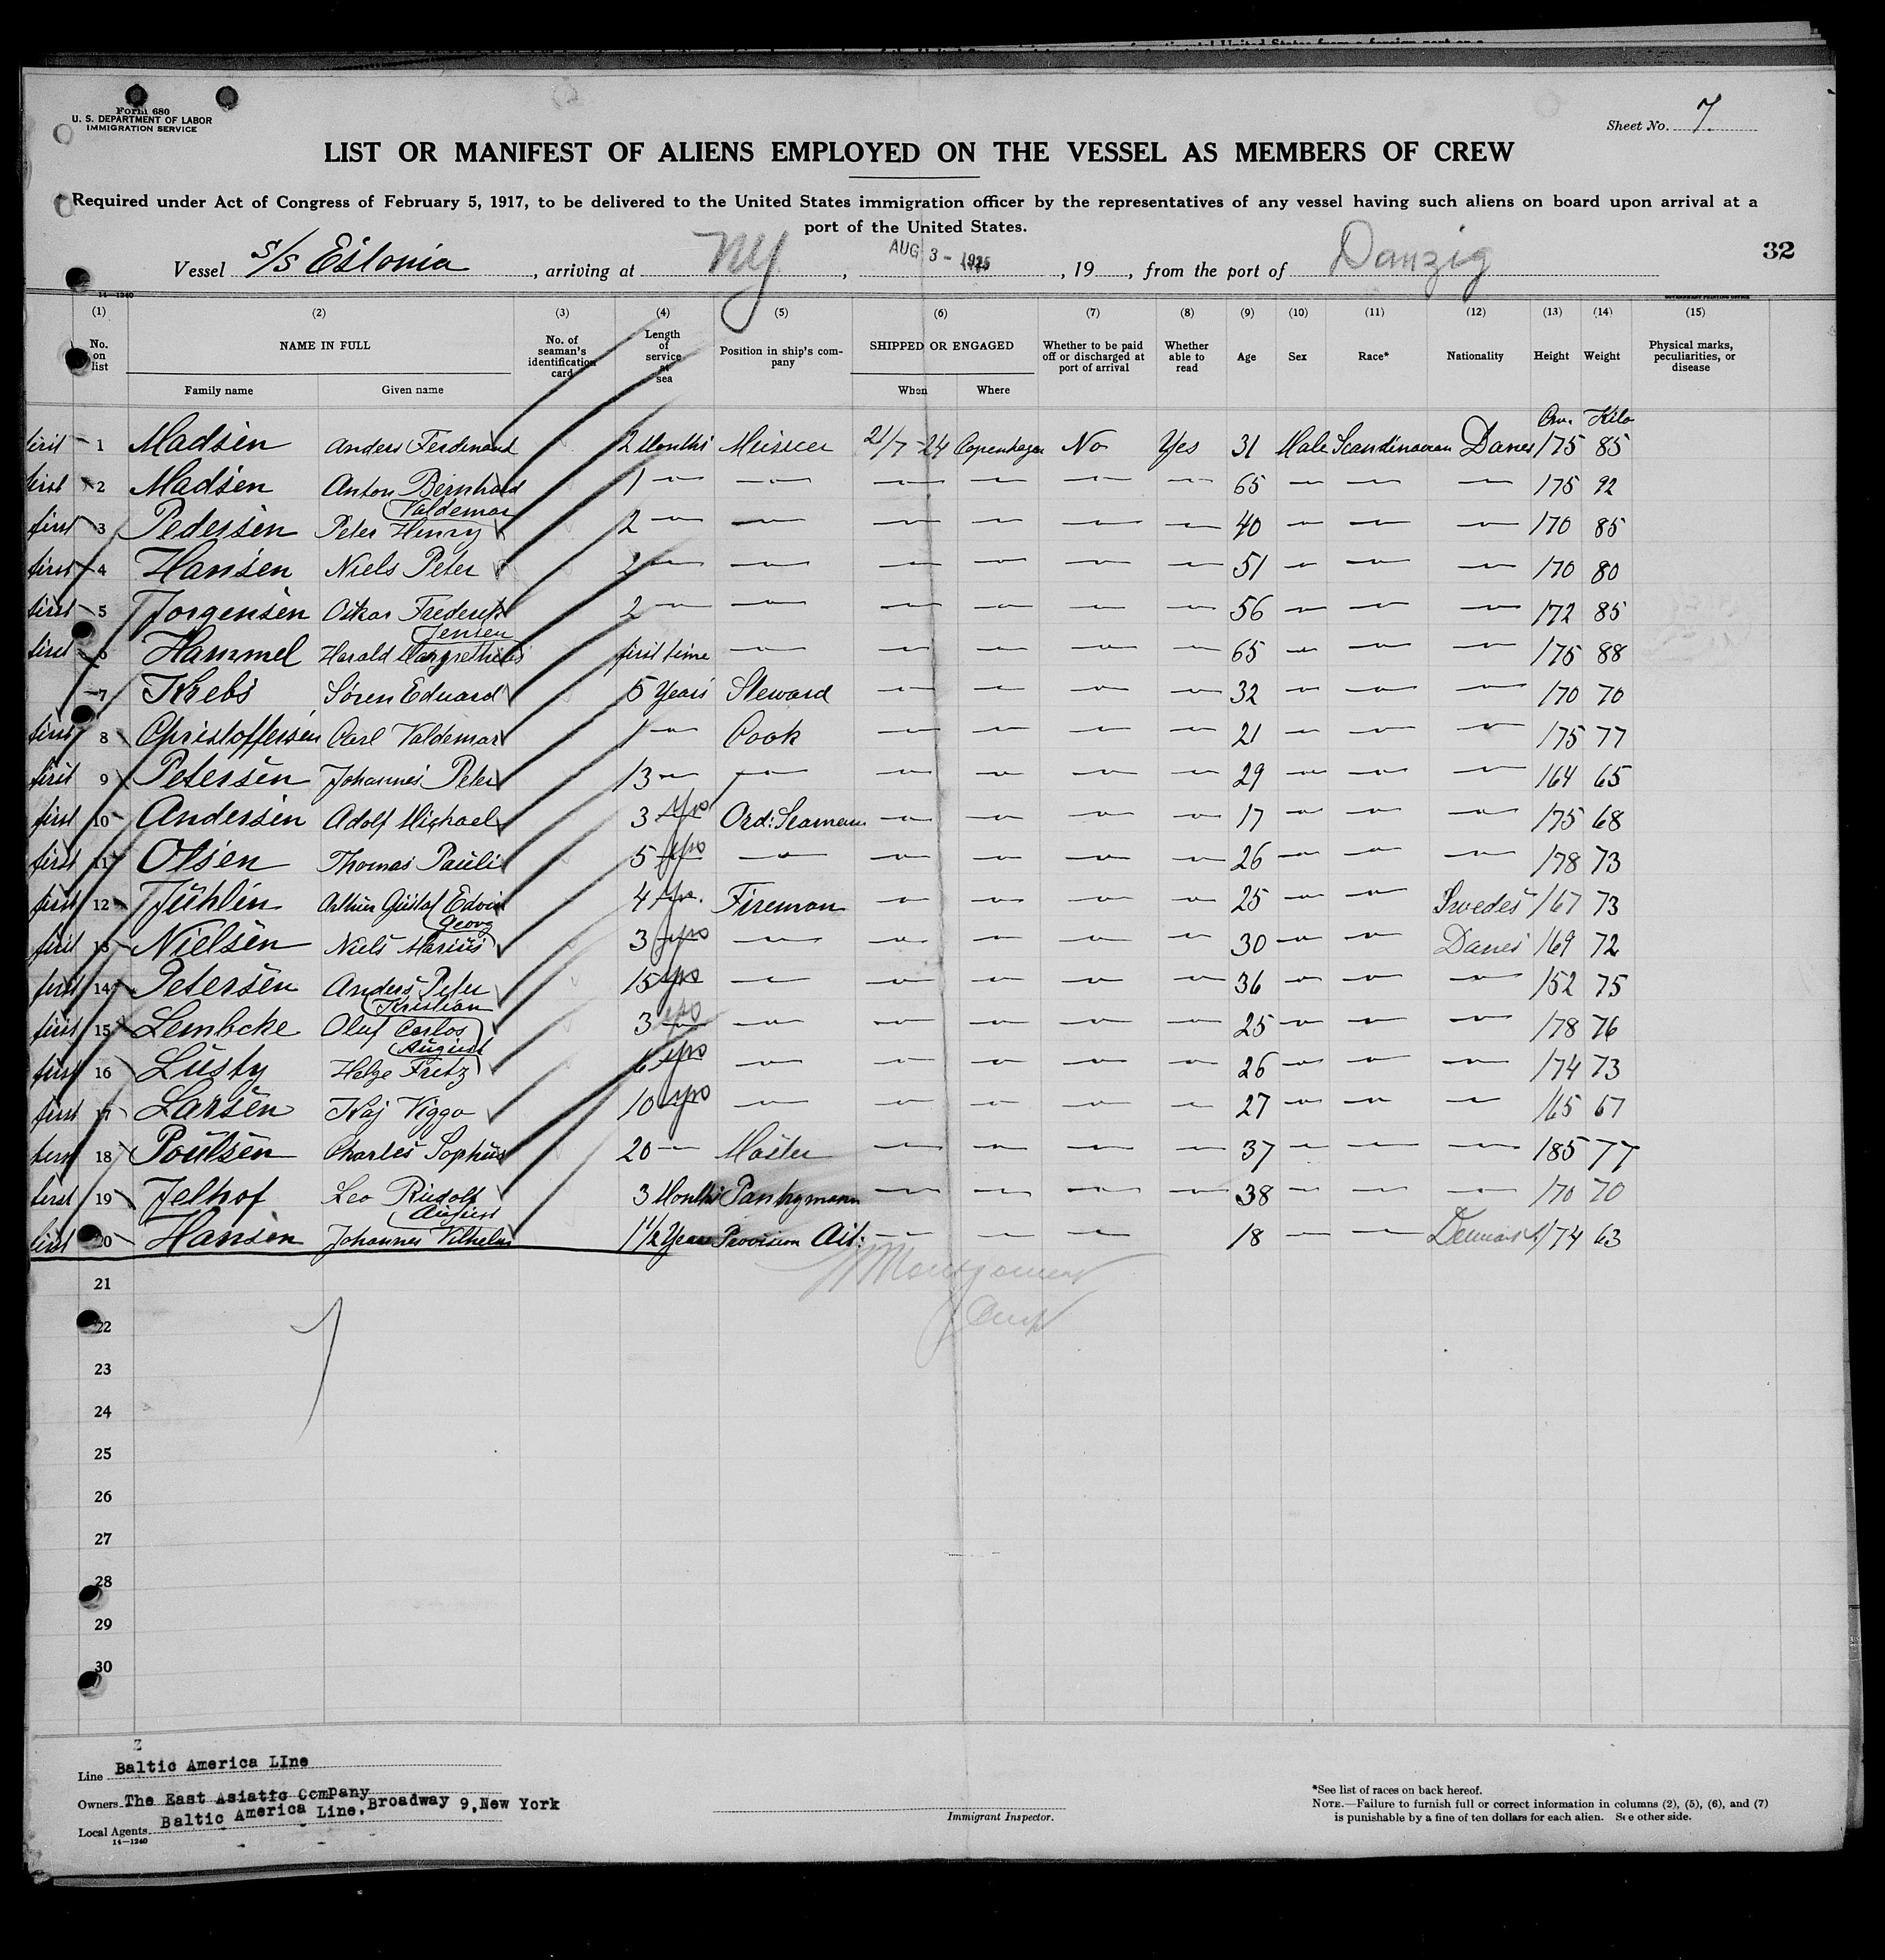 Form 680
U. S. DEPARTMENT OF LABOR
IMMIGRATION SERVICE
Sheet No. 7.
LIST OR MANIFEST OF ALIENS EMPLOYED ON THE VESSEL AS MEMBERS OF CREW
Required under Act of Congress of February 5, 1917, to be delivered to the United States immigration officer by the representatives of any vessel having such aliens on board upon arrival at a
port of the United States.
Vessel S/S Estonia, arriving at NY, AUG 3 - 1925, 19, from the port of Danzig
32
14—1240
GOVERNMENT PRINTING OFFICE
(1) (2) (3) (4) (5) (6) (7) (8) (9) (10) (11) (12) (13) (14) (15)
No. on list NAME IN FULL Family name Given name No. of seaman's identification card Length of service at sea Position in ship's company SHIPPED OR ENGAGED When Where Whether to be paid off or discharged at port of arrival Whether able to read Age Sex Race* Nationality Height Weight Physical marks, peculiarities, or disease
Cm. Kilo
first 1 Madsen Anders Ferdinand 2 Months 21/7-24 Copenhagen No Yes 31 Male Scandinavian Danes 175 85
first 2 Madsen Anton Bernhard 1 — — — — — — 65 — — — 175 92
first 3 Pedersen Peter Henry Valdemar 2 — — — — — — 40 — — — 170 85
first 4 Hansen Niels Peter 2 — — — — — — 51 — — — 170 80
first 5 Jorgensen Oskar Frederik 2 — — — — — — 56 — — — 172 85
first 6 Hammel Harald Jensen first time — — — — — 65 — — — 175 88
7 Krebs Sören Eduard 5 Years Steward — — — — 32 — — — 170 70
first 8 Christoffersen Carl Valdemar 1 — Cook — — — — 21 — — — 175 77
first 9 Petersen Johannes Peter 13 — — — — — — 29 — — — 164 65
first 10 Andersen Adolf Michael 3 yrs Ord: Seaman — — — — 17 — — — 175 68
first 11 Olsen Thomas Pauli 5 yrs — — — — — 26 — — — 178 73
first 12 Jühlin Arthur Gustaf Edvin 4 yrs. Fireman — — — — 25 — — Swedes 167 73
first 13 Nielsen Niels Marius Georg 3 yrs — — — — — 30 — — Danes 169 72
first 14 Petersen Anders Peter 15 yrs — — — — — 36 — — — 152 75
first 15 Lembcke Oluf Carlos Kristian 3 yrs — — — — — 25 — — — 178 76
first 16 Lusty Helge Fritz August 6 yrs — — — — — 26 — — — 174 73
first 17 Larsen Kaj Viggo 10 yrs — — — — — 27 — — — 165 67
first 18 Poulsen Charles Sophus 20 — — — — — 37 — — — 185 77
first 19 Jelhof Leo Rudolf 3 Months Pantrymann — — — — 38 — — — 170 70
first 20 Hansen Johannes Vilhelm August 1 1/2 Year Provision — — — 18 — — 174 63
21
22
23
24
25
26
27
28
29
30
Line Baltic America LIne
Owners The East Asiatic Company
Local Agents Baltic America Line, Broadway 9, New York
14—1240
Immigrant Inspector.
*See list of races on back hereof.
NOTE.—Failure to furnish full or correct information in columns (2), (5), (6), and (7)
is punishable by a fine of ten dollars for each alien. See other side.